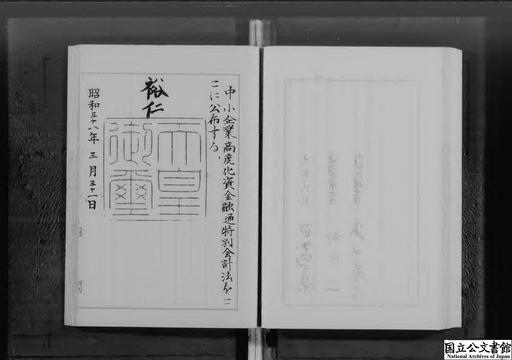 中小企業高度化資金融通特別会計法をこ
こに公布する。
裕仁
天皇
御璽
昭和三十八年三月三十一日
国立公文書館
National Archives of Japan